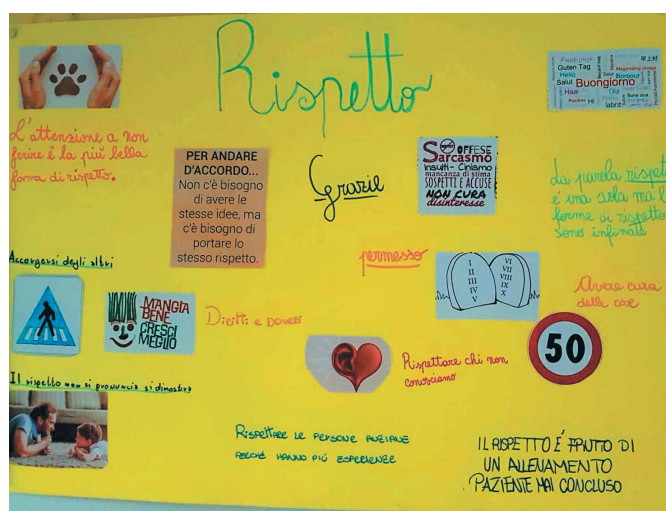 Rispetto
Guten Tag
Hello
Salut
Bonour
Buongiorno
Haai
Olá
Hi
labrit
Buna ziua
早上好
L'attenzione a non
ferire è la più bella
forma di rispetto.
PER ANDARE
D'ACCORDO...
Non c'è bisogno
di avere le
stesse idee, ma
c'è bisogno di
portare lo
stesso rispetto.
Grazie
OFFESE
Sarcasmo
Insulti - Cinismo
mancanza di stima
SOSPETTI E ACCUSE
NON CURA
disinteresse
La parola rispet
è una sola ma l
forme di rispetto
sono infinite
Accorgersi degli altri
permesso
I
II
III
IV
V
VI
VII
VIII
IX
X
Avere cura
delle cose
MANGIA
BENE
CRESCI
MEGLIO
Diritti e Doveri
50
Rispettare chi non
conosciamo
Il rispetto non si pronuncia si dimostra
RISPETTARE LE PERSONE ANZIANE
PERCHÈ HANNO PIÙ ESPERIENZE
IL RISPETTO É FRUTTO DI
UN ALLENAMENTO
PAZIENTE MAI CONCLUSO